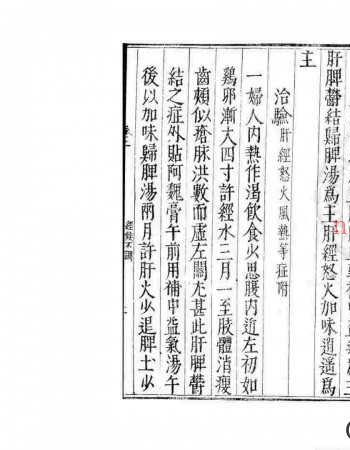 肝脾鬱結歸脾湯為主肝經怒火加味逍遙為
主
治驗肝經怒火風熱等症附
一婦人內熱作渴飲食少思腹內近左初如
鷄卵漸大四寸許經水三月一至肢體消瘦
齒頰似瘡脉洪數而虛左關尤甚此肝脾鬱
結之症外貼阿魏膏午前用補中益氣湯午
後以加味歸脾湯兩月許肝火少退脾土少